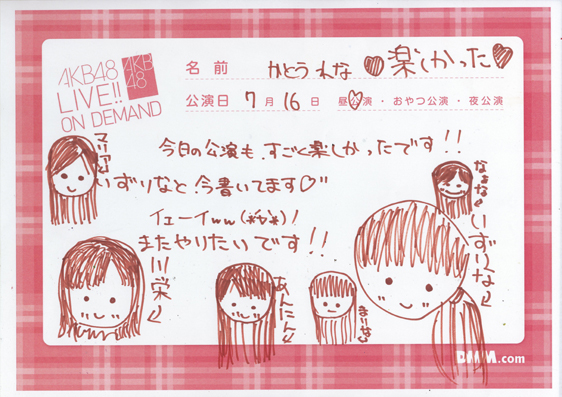 AKB48
LIVE!!
ON DEMAND
AKB
48
名前 かとうれな ♥楽しかった♥
公演日 7月16日 昼公演・おやつ公演・夜公演
今日の公演も、すごく楽しかったです!!
いずりなと今書いてます♡"
イェーイww(*´v`*)!
またやりたいです!!
マリア
なぁな
いずりな
川栄
あんたん
まりな
DMM.com